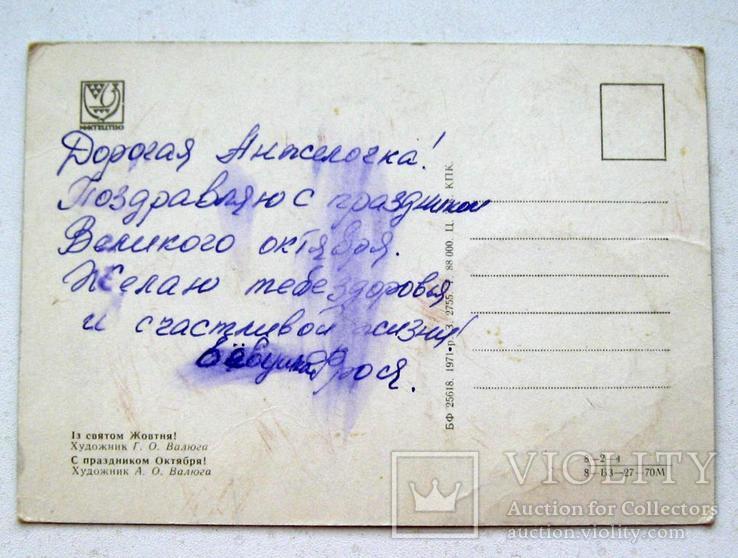 МИСТЕЦТВО
Дорогая Анжелочка!
Поздравляю с праздником
Великого октября.
Желаю тебе здоровья
и счастливой жизни
Фрося.
Із святом Жовтня!
Художник Г. О. Валюга
С праздником Октября!
Художник А. О. Валюга
БФ 25618. 1971 р. 2755. 88 000. Ц КПК.
8—2—4
8—БЗ—27—70М
VIOLITY
Auction for Collectors
auction.violity.com